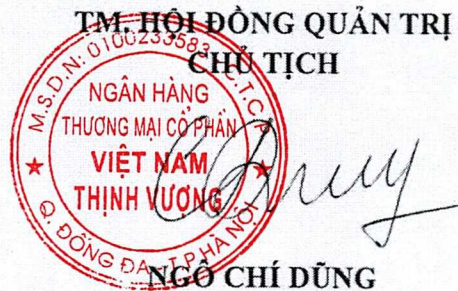 TM. HỘI ĐỒNG QUẢN TRỊ
CHỦ TỊCH
M.S.D.N: 0100233583 C.T.C.P
NGÂN HÀNG
THƯƠNG MẠI CỔ PHẦN
VIỆT NAM
THỊNH VƯỢNG
Q. ĐỐNG ĐA - T.P HÀ NỘI
NGÔ CHÍ DŨNG